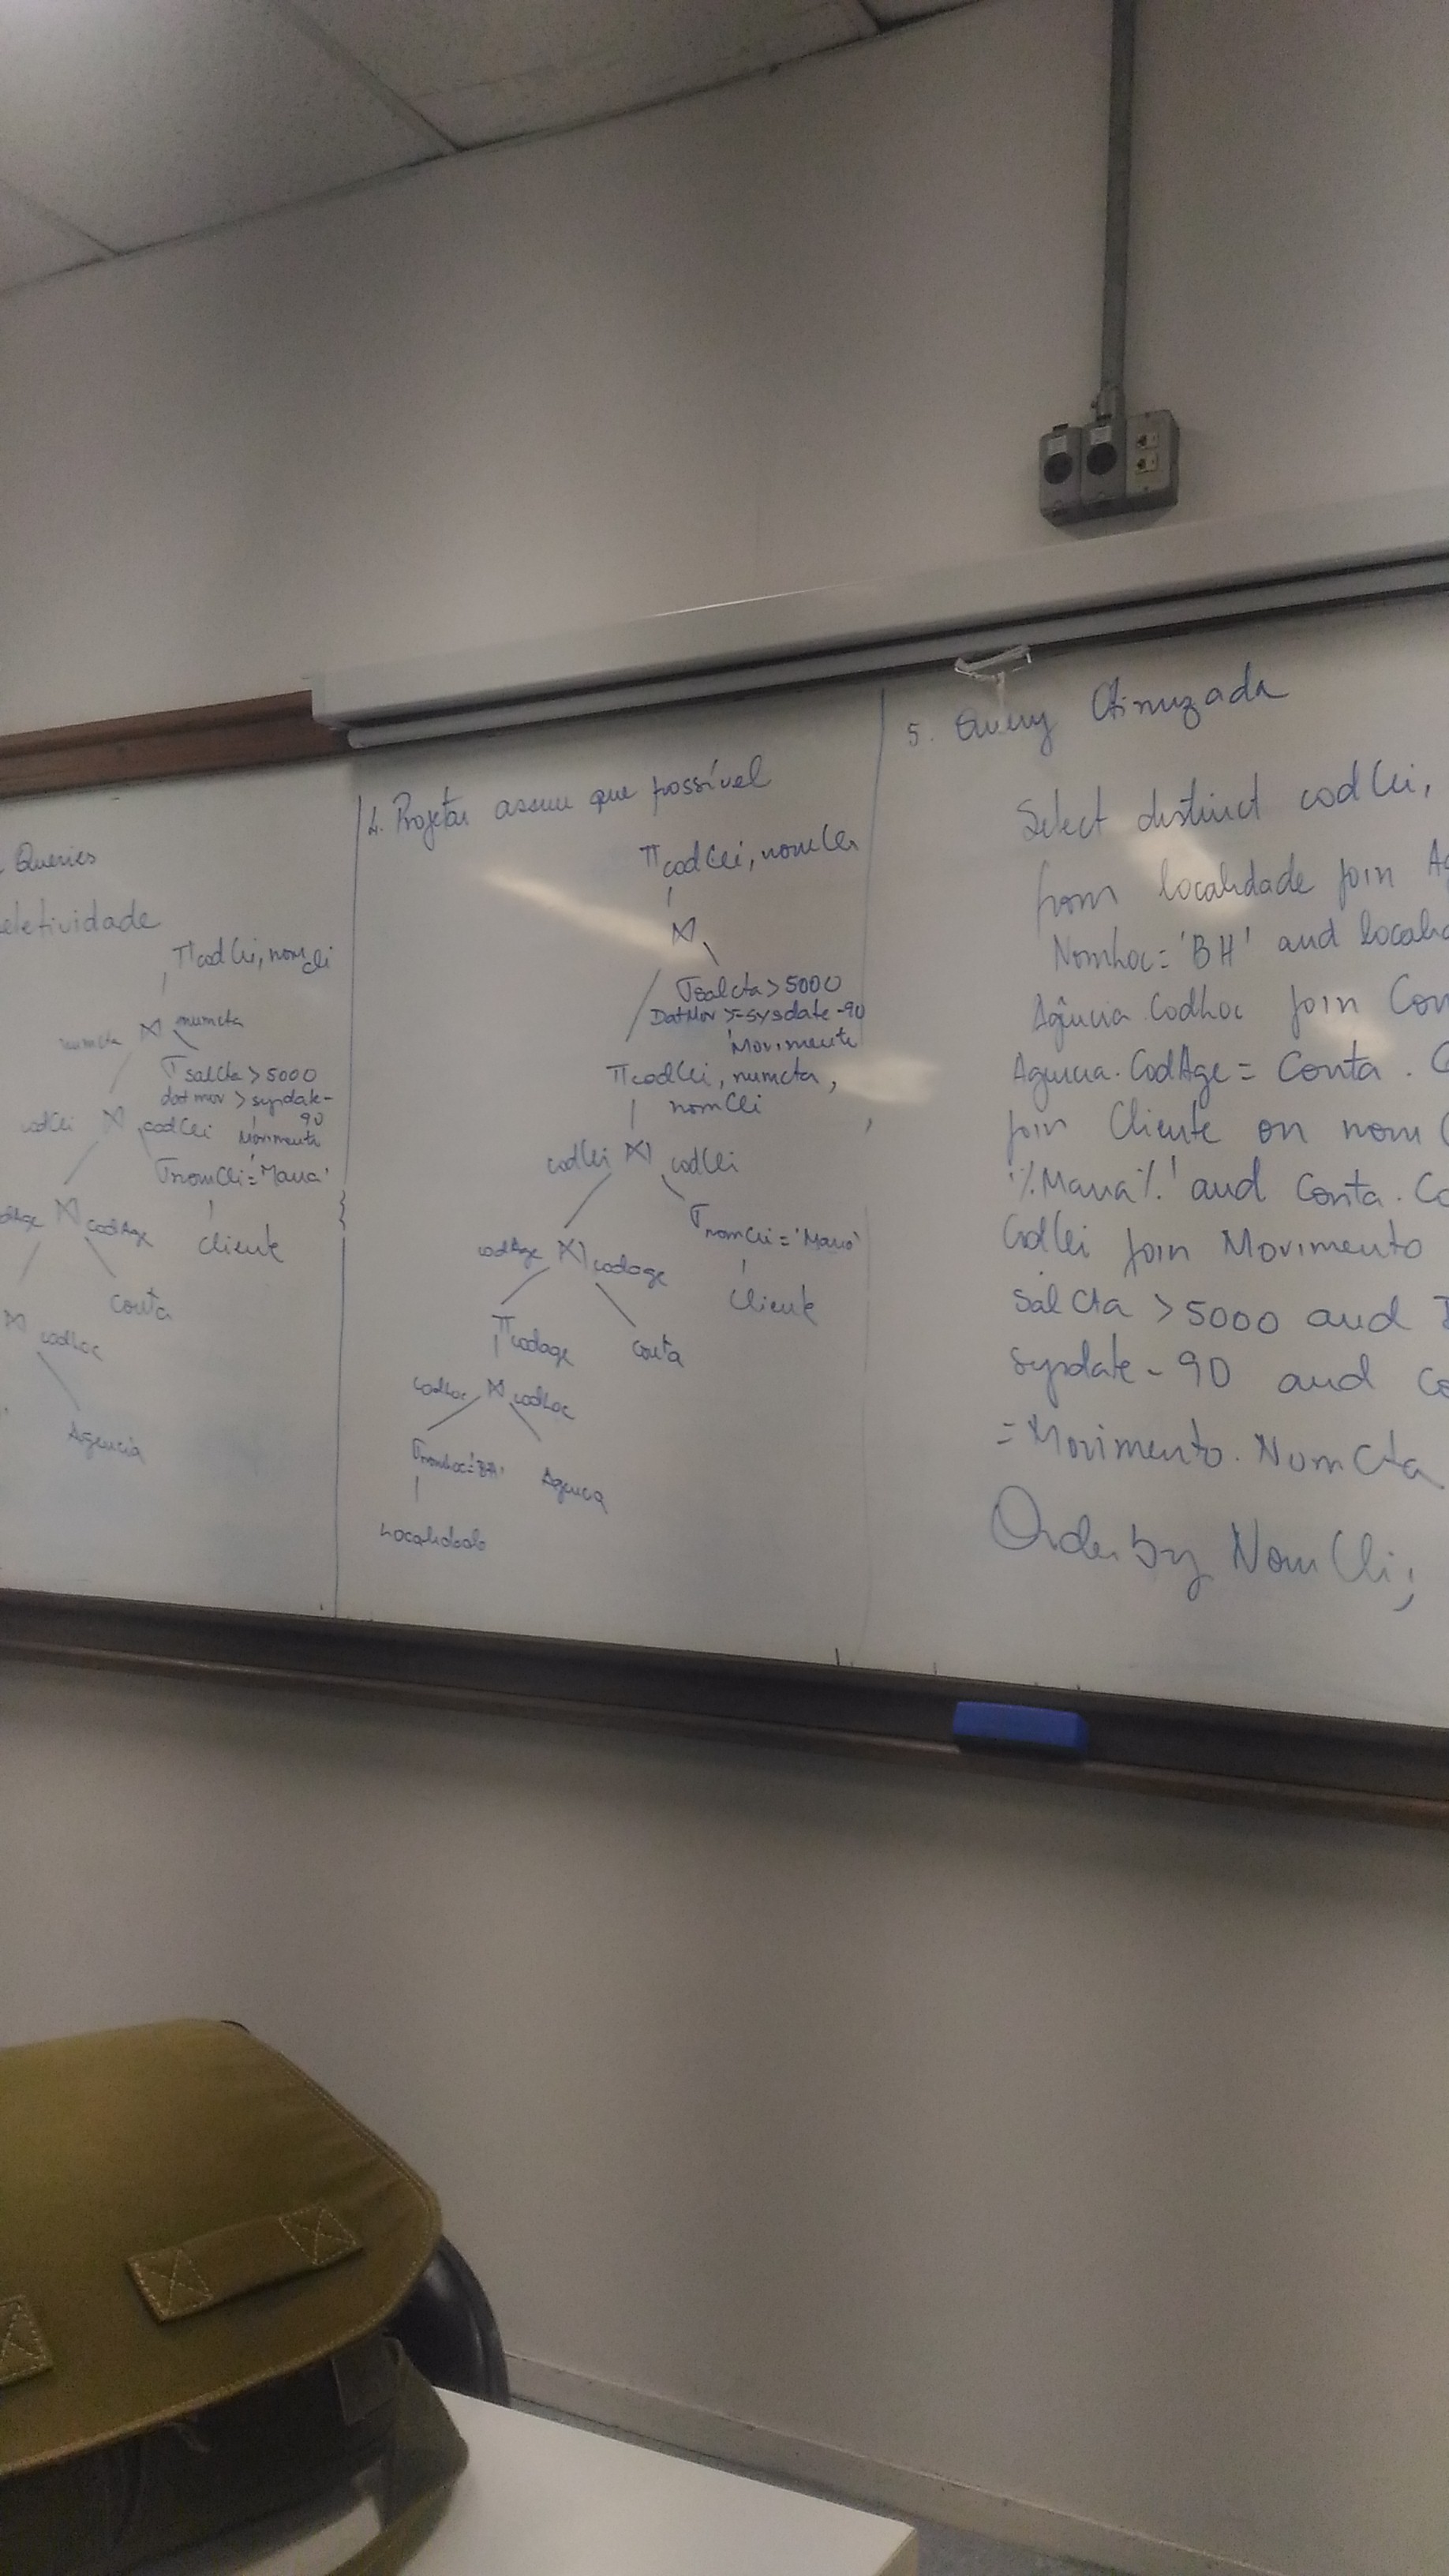 Queries
eletividade
π codCli, nomcli
numcta ⋈ numcta
σ salcta > 5000
dat mov > sysdate -
90
Movimento
odCli ⋈ codCli
σ nomCli = 'Maria'
cliente
dAge ⋈ codAge
Conta
⋈ codLoc
Agencia
4. Projetar assim que possível
π codCli, nomCli
⋈
σ salcta > 5000
DatMov >= sysdate - 90
Movimento
π codCli, numcta,
nomCli
codCli ⋈ codCli
σ nomCli = 'Maria'
cliente
codAge ⋈ codage
π codage
conta
codLoc ⋈ codLoc
σ nomLoc = 'BH'
Agencia
Localidade
5. Query Otimizada
Select distinct codCli,
from localidade join Ag
NomLoc = 'BH' and locali
Agência.CodLoc join Con
Agencia.CodAge = Conta. C
join Cliente on nom C
'%Maria%' and Conta. Co
CodCli join Movimento
Sal Cta > 5000 and D
sysdate - 90 and Co
= Movimento. Num Cta
Order by Nom Cli;